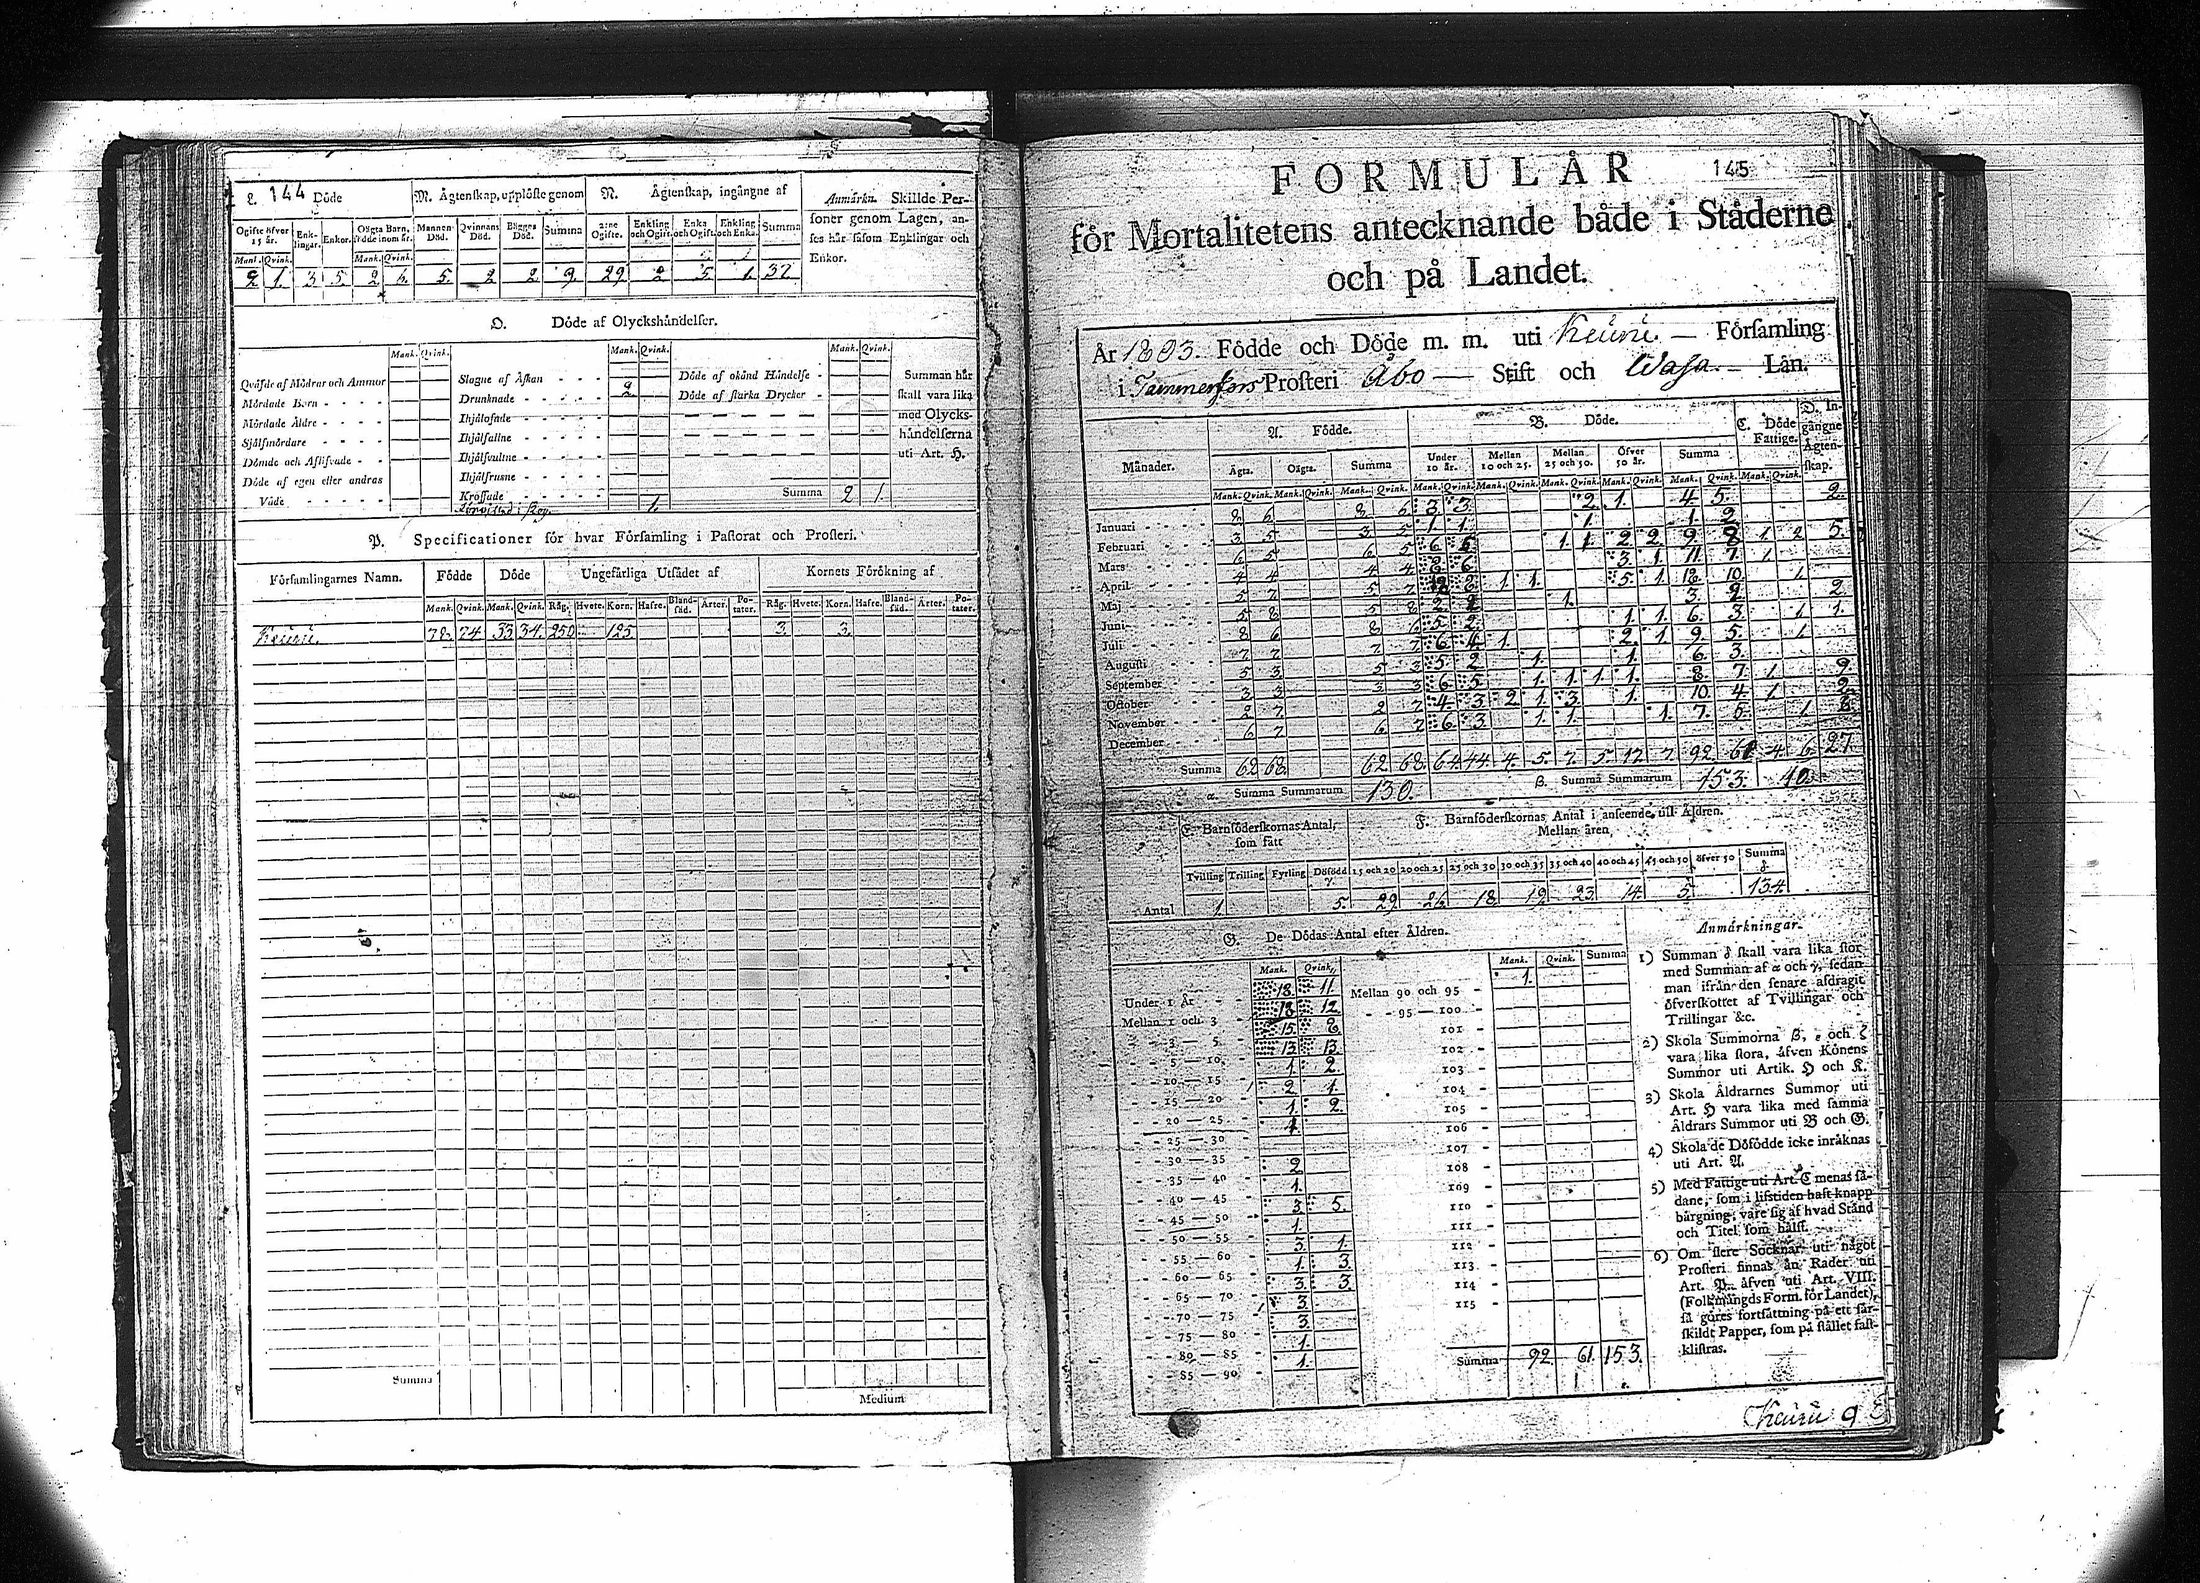 L. 144 Döde
M. Ägtenskap, upplöste genom
N. Ägtenskap, ingångne af
Anmärkn. Skillde Per-
soner genom Lagen, an-
ses här såsom Enklingar och
Enkor.
Ogifte öfver 15 år. Enk-lingar. Enkor. Oägta Barn, födde inom år. Mannens Död. Qvinnans Död. Bägges Död. Summa 2:ne Ogifte. Enkling och Ogift. Enka och Ogift. Enkling och Enka. Summa
Mank. Qvink. Mank. Qvink.
2 1. 3 5. 2 6. 5. 2 2. 9. 29. 2 5. 1. 37.
O. Döde af Olyckshändelser.
Mank. Qvink. Mank. Qvink. Mank. Qvink.
Qväfde af Mödrar och Ammor
Mördade Barn
Mördade Äldre
Själfmördare
Dömde och Aflifvade
Döde af egen eller andras
Våde
Slagne af Åskan
Drunknade 2
Ihjälsofnade
Ihjälfallne
Ihjälsvultne
Ihjälfrusne
Krossade
1.
Döde af okänd Händelse
Döde af starka Drycker
Summa 2 1.
Summan här
skall vara lika
med Olycks-
händelserna
uti Art. H.
P. Specificationer för hvar Församling i Pastorat och Prosteri.
Församlingarnes Namn. Födde Döde Ungefärliga Utsädet af Kornets Förökning af
Mank. Qvink. Mank. Qvink. Råg. Hvete. Korn. Hafre. Bland-säd. Ärter. Po-tater. Råg. Hvete. Korn. Hafre. Bland-säd. Ärter. Po-tater.
Keuru. 78. 74 33 34. 250 125 3. 3.
Summa
Medium
FORMULÄR 145
för Mortalitetens antecknande både i Städerne
och på Landet.
År 1803. Födde och Döde m. m. uti Keuru — Församling
i Tammerfors Prosteri Åbo — Stift och Wasa — Län.
Månader. A. Födde. B. Döde. C. Döde Fattige. D. In-gångne Ägten-skap.
Ägta. Oägta. Summa Under 10 år. Mellan 10 och 25. Mellan 25 och 50. Öfver 50 år. Summa
Mank. Qvink. Mank. Qvink. Mank. Qvink. Mank. Qvink. Mank. Qvink. Mank. Qvink. Mank. Qvink. Mank. Qvink. Mank. Qvink.
Januari 8 6 8 6 3 3 2 1. 4 5. 2.
Februari 3 5 3 5 1. 1. 1. 1. 2
Mars 6 5 6 5 6 5 1. 1. 2 2. 9. 8 1 2 5.
April 4 4 4 4 8 6 3 1. 11 7. 1.
Maj 5 7 5 7 12 8 1 1. 5. 1. 18 10. 1.
Juni 5 8 5 8 2 2 1. 3. 2 2
Juli 8 6 8 6 5 2 1 1. 6. 3. 1 1.
Augusti 7 7 7 7 6 4 1. 2. 1. 9. 5. 1.
September 5 3 5 3 5 2 1. 1. 6 3.
October 3 3 3 3 6 5 1. 1. 1. 1. 8 7 1 9.
November 2 7 2 7 4 3 2 1. 3. 1. 10 4 1 2
December 6 7 6 7 6 3 1. 1. 1. 7. 5. 1
Summa 62 68. 62. 68. 64 44 4. 5. 7. 5. 17. 7. 92. 61 4. 6. 27.
α. Summa Summarum 130. β. Summa Summarum 153. 10
E. Barnföderskornas Antal, som fått
F. Barnföderskornas Antal i anseende till Åldren. Mellan åren
Tvilling Trilling Fyrling Dödfödd γ. 15 och 20 20 och 25 25 och 30 30 och 35 35 och 40 40 och 45 45 och 50 öfver 50 Summa δ
Antal 1. 5. 29 26 18 19. 23. 14. 5. 134
G. De Dödas Antal efter Åldren.
Mank. Qvink. Mank. Qvink. Summa
Under 1 År 18. 11
Mellan 1 och 3 18 12
3 — 5 15 8
5 — 10 13 13.
10 — 15 1. 2.
15 — 20 2 1.
20 — 25 1. 2.
25 — 30 1.
30 — 35 2
35 — 40 1.
40 — 45 3 5.
45 — 50 1.
50 — 55 3. 1
55 — 60 1. 3.
60 — 65 3. 3.
65 — 70 3.
70 — 75 3.
75 — 80 1.
80 — 85 1.
85 — 90
Mellan 90 och 95 1.
95 — 100
101
102
103
104
105
106
107
108
109
110
111
112
113
114
115
Summa 92. 61. 153.
Anmärkningar.
1) Summan δ skall vara lika stor
med Summan af α och γ, sedan
man ifrån den senare afdragit
öfverskottet af Tvillingar och
Trillingar &c.
2) Skola Summorna β, ε och ζ
vara lika stora, äfven Könens
Summor uti Artik. H och K.
3) Skola Åldrarnes Summor uti
Art. H vara lika med samma
Åldrars Summor uti B och G.
4) Skola de Döfödde icke inräknas
uti Art. A.
5) Med Fattige uti Art. C menas så-
dane, som i lifstiden haft knapp
bärgning, vare sig af hvad Stånd
och Titel som hälst.
6) Om flere Socknar uti något
Prosteri finnas än Rader uti
Art. P. äfven uti Art. VIII.
(Folkmängds Form. för Landet),
så göres fortsättning på ett sär-
skildt Papper, som på stället fast-
klistras.
Keuru 9